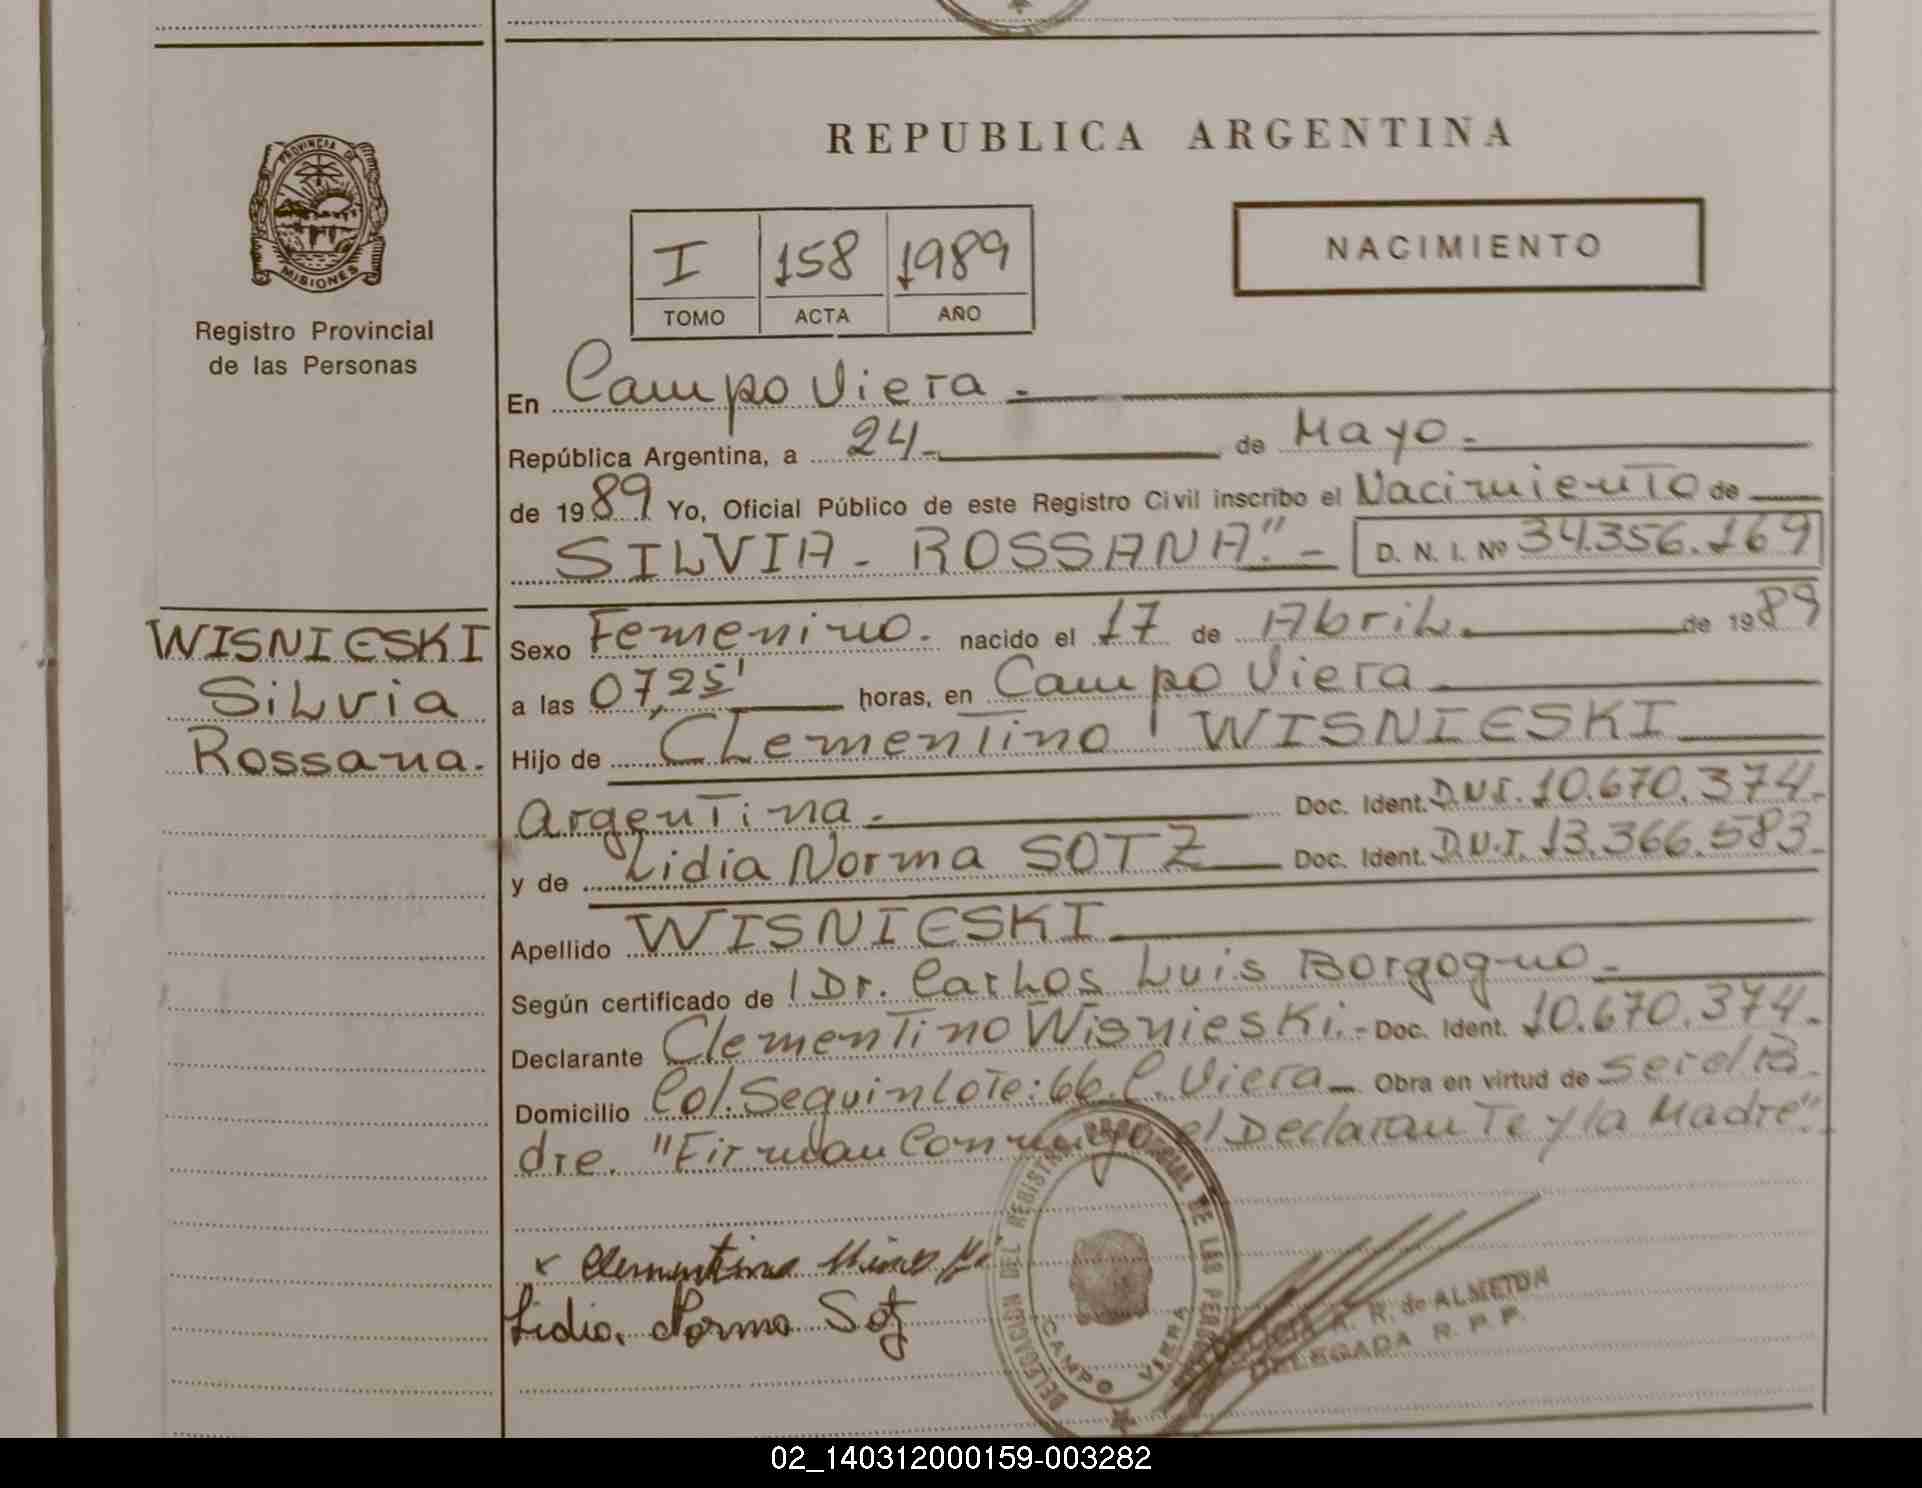 REPUBLICA ARGENTINA
PROVINCIA DE
MISIONES
Registro Provincial
de las Personas
I 158 1989
TOMO ACTA AÑO
NACIMIENTO
En Campo Viera.
República Argentina, a 24 de Mayo.
de 1989 Yo, Oficial Público de este Registro Civil inscribo el Nacimiento de
SILVIA - ROSSANA". - D. N. I. Nº 34.356.169
WISNIESKI
Silvia
Rossana.
Sexo Femenino. nacido el 17 de Abril. de 1989
a las 07,25' horas, en Campo Viera
Hijo de Clementino WISNIESKI
Argentina. Doc. Ident. D.N.I. 10.670.374.
y de Lidia Norma SOTZ Doc. Ident. D.N.I. 13.366.583.
Apellido WISNIESKI
Según certificado de Dr. Carlos Luis Borgogno.
Declarante Clementino Wisnieski.- Doc. Ident. 10.670.374.
Domicilio Col. Seguin Lote: 66. C. Viera Obra en virtud de ser el Pa
dre. "Firman Conmigo el Declarante y la Madre".
Clementino
Lidia Norma Sotz
DELEGACION DEL REGISTRO PROVINCIAL DE LAS PERSONAS
CAMPO VIERA
R. de ALMEIDA
DELEGADA R. P. P.
02_140312000159-003282